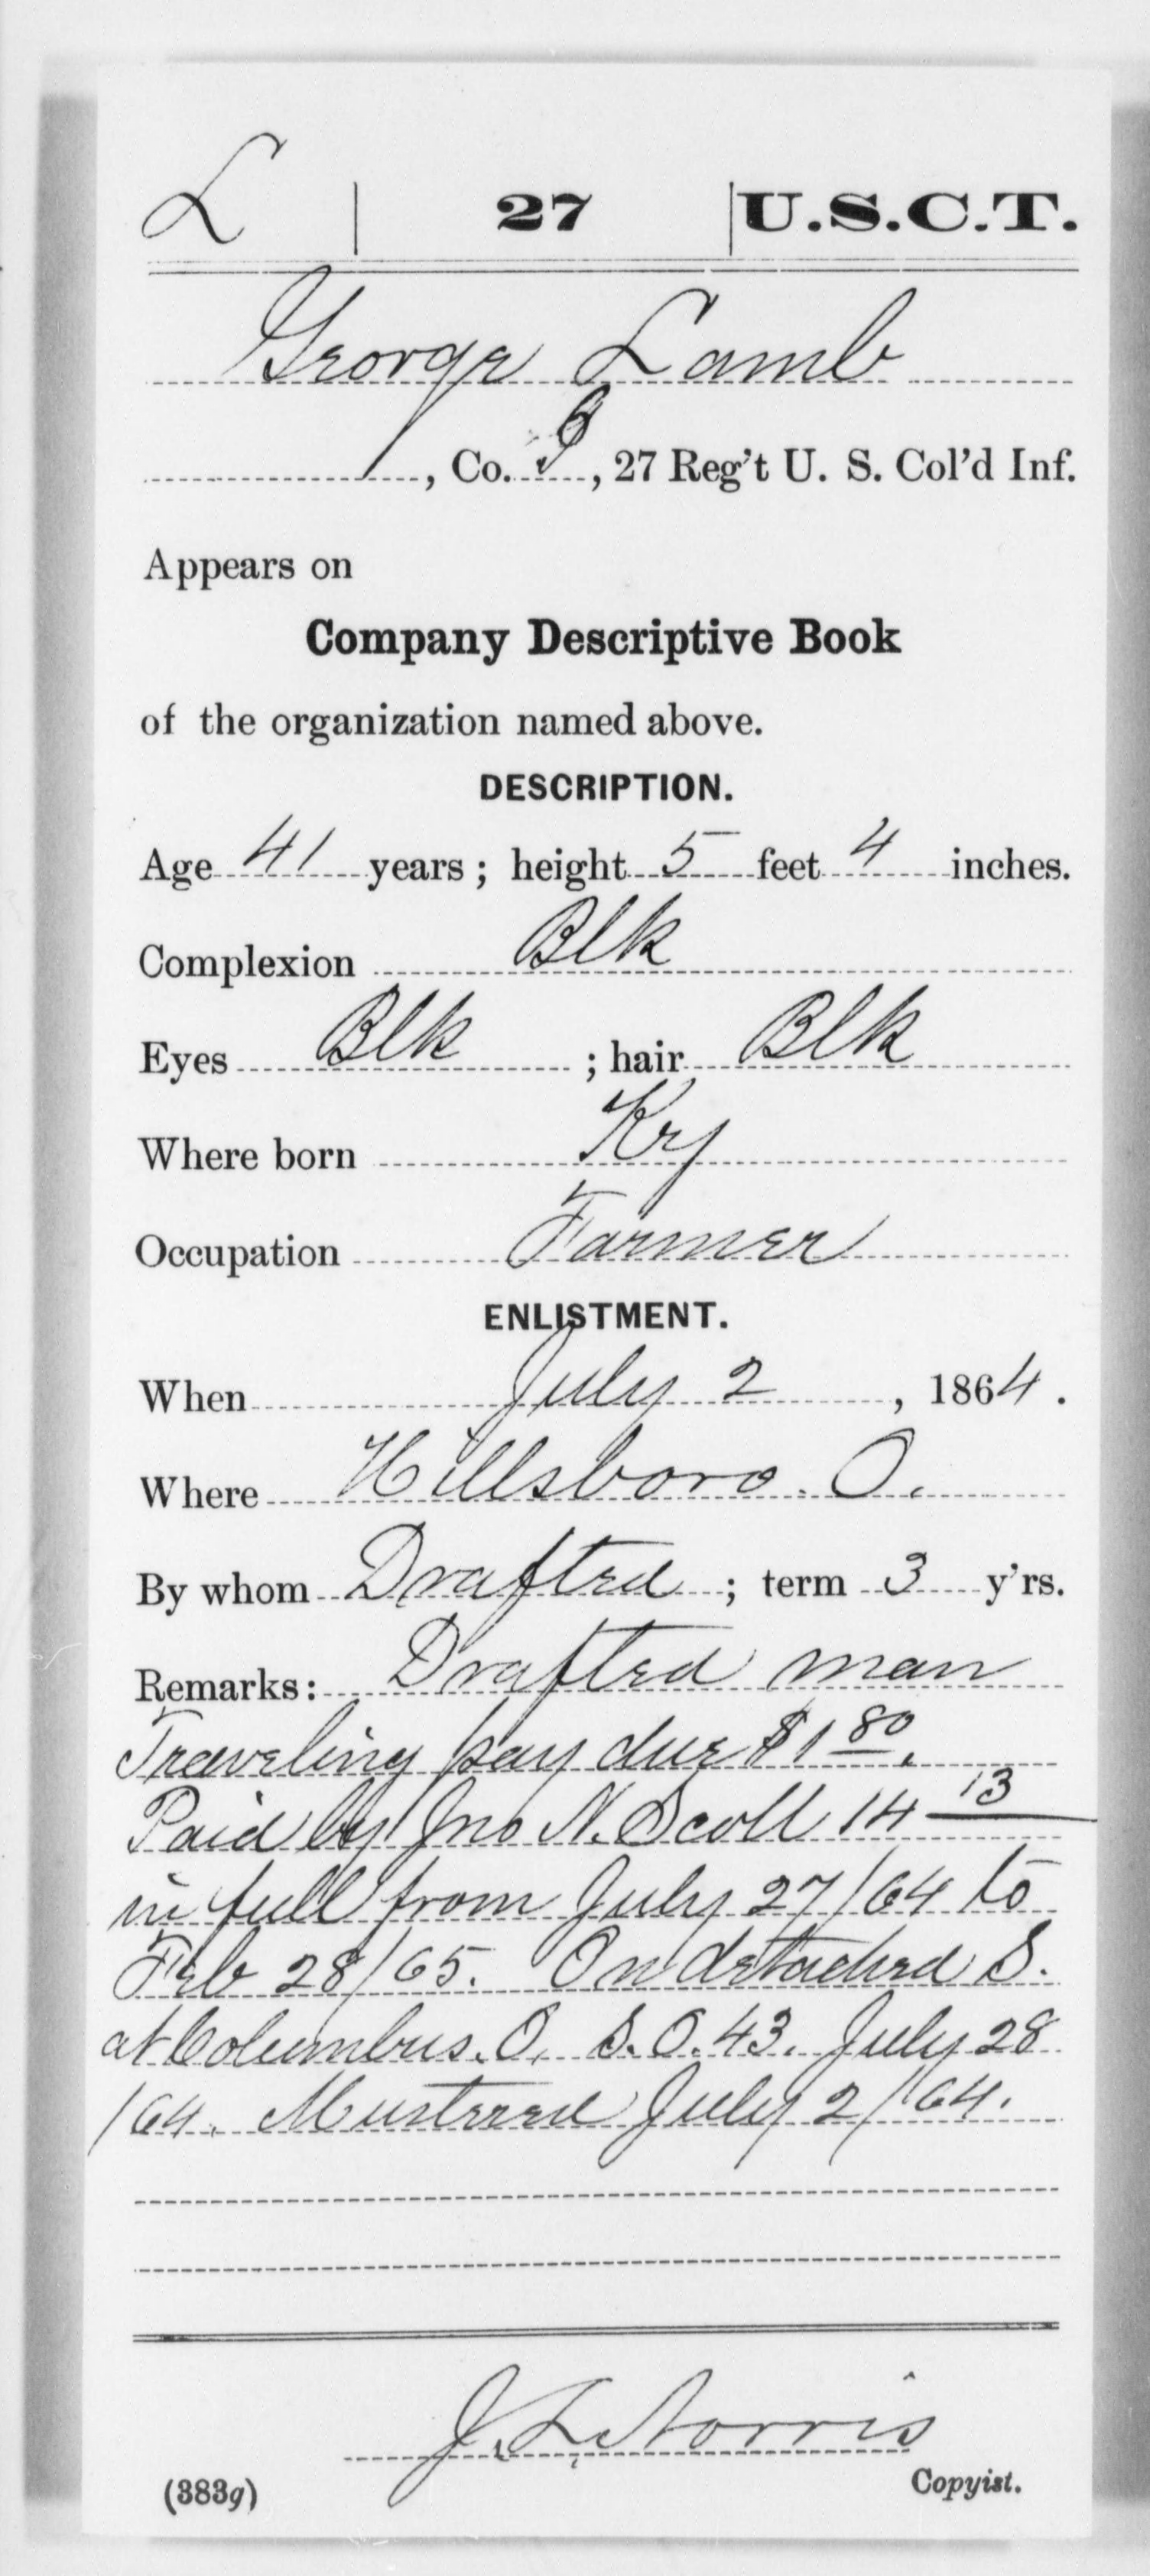 L | 27 | U.S.C.T.
George Lamb
, Co. , 27 Reg't U. S. Col'd Inf.
Appears on
Company Descriptive Book
of the organization named above.
DESCRIPTION.
Age 41 years; height 5 feet 4 inches.
Complexion Blk
Eyes Blk ; hair Blk
Where born Ky
Occupation Farmer
ENLISTMENT.
When July 2 , 1864.
Where Hillsboro. O.
By whom Drafted ; term 3 y'rs.
Remarks: Drafted man
Traveling pay due $1 80.
Paid by Jno N. Scott 14 13
in full from July 27/64 to
Feb 28/65. On detached S.
at Columbus. O. S.O. 43. July 28
/64. Mustered July 2/64.
J. L. Norris
(383g) Copyist.